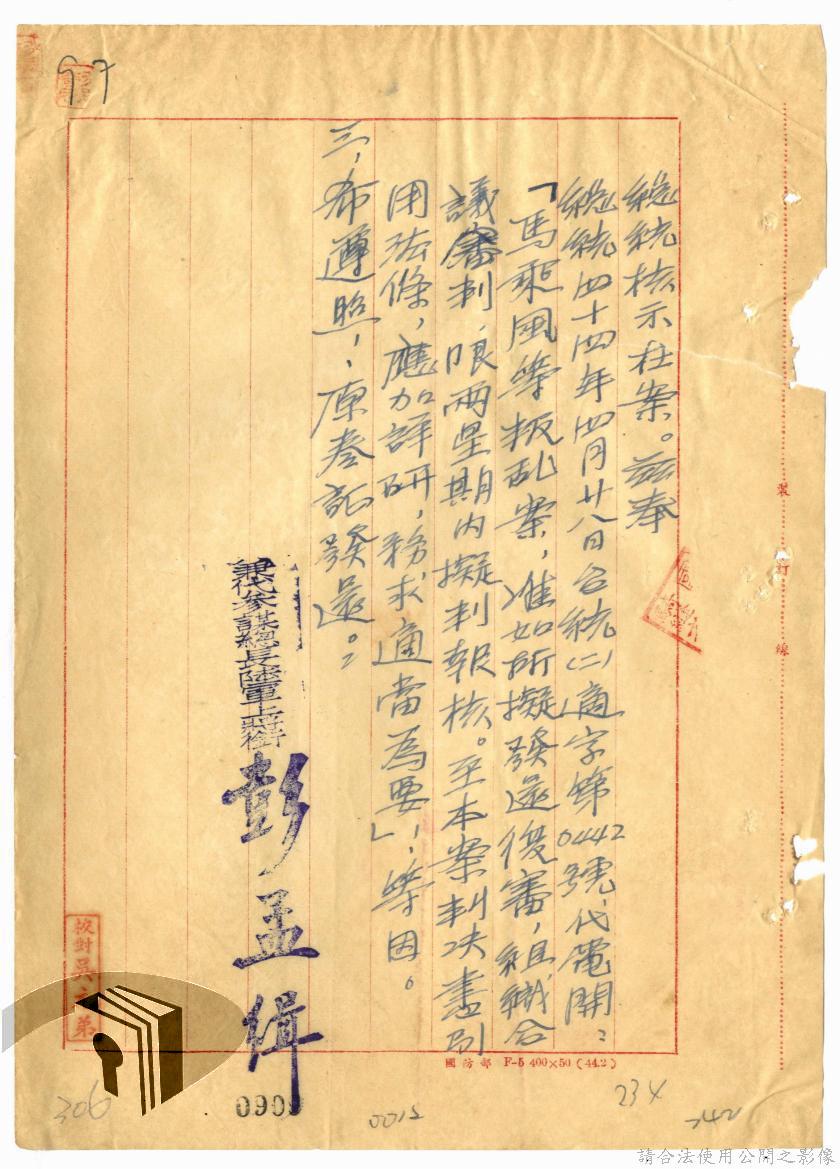 97
總統核示在案。茲奉
總統四十四年四月廿八日台統(二)適字第0442號代電開：
「馬乘風等叛乱案，准如所擬發還復審，組織合
議審判，限兩星期內擬判報核。至本案判决書引
用法條，應加詳研，務求適當為要」，等因。
三、希遵照，原卷訊發還。
兼代參謀總長陸軍上將銜
彭孟緝
校對吳
弟
裝
訂
線
國防部 F-5 400×50 (44.2)
306
090
0015
234
242
請合法使用公開之影像